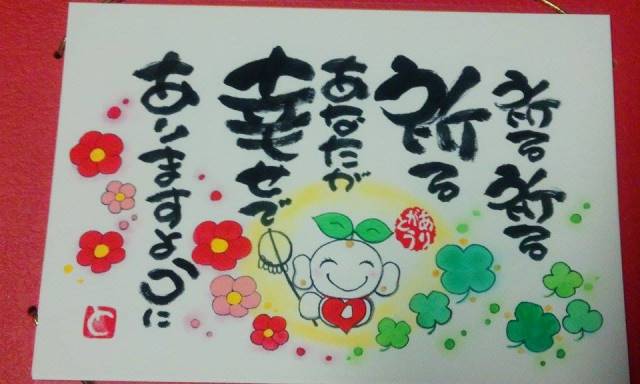 祈る祈る
祈る
あなたが
幸せで
ありますように
ありがとう
と